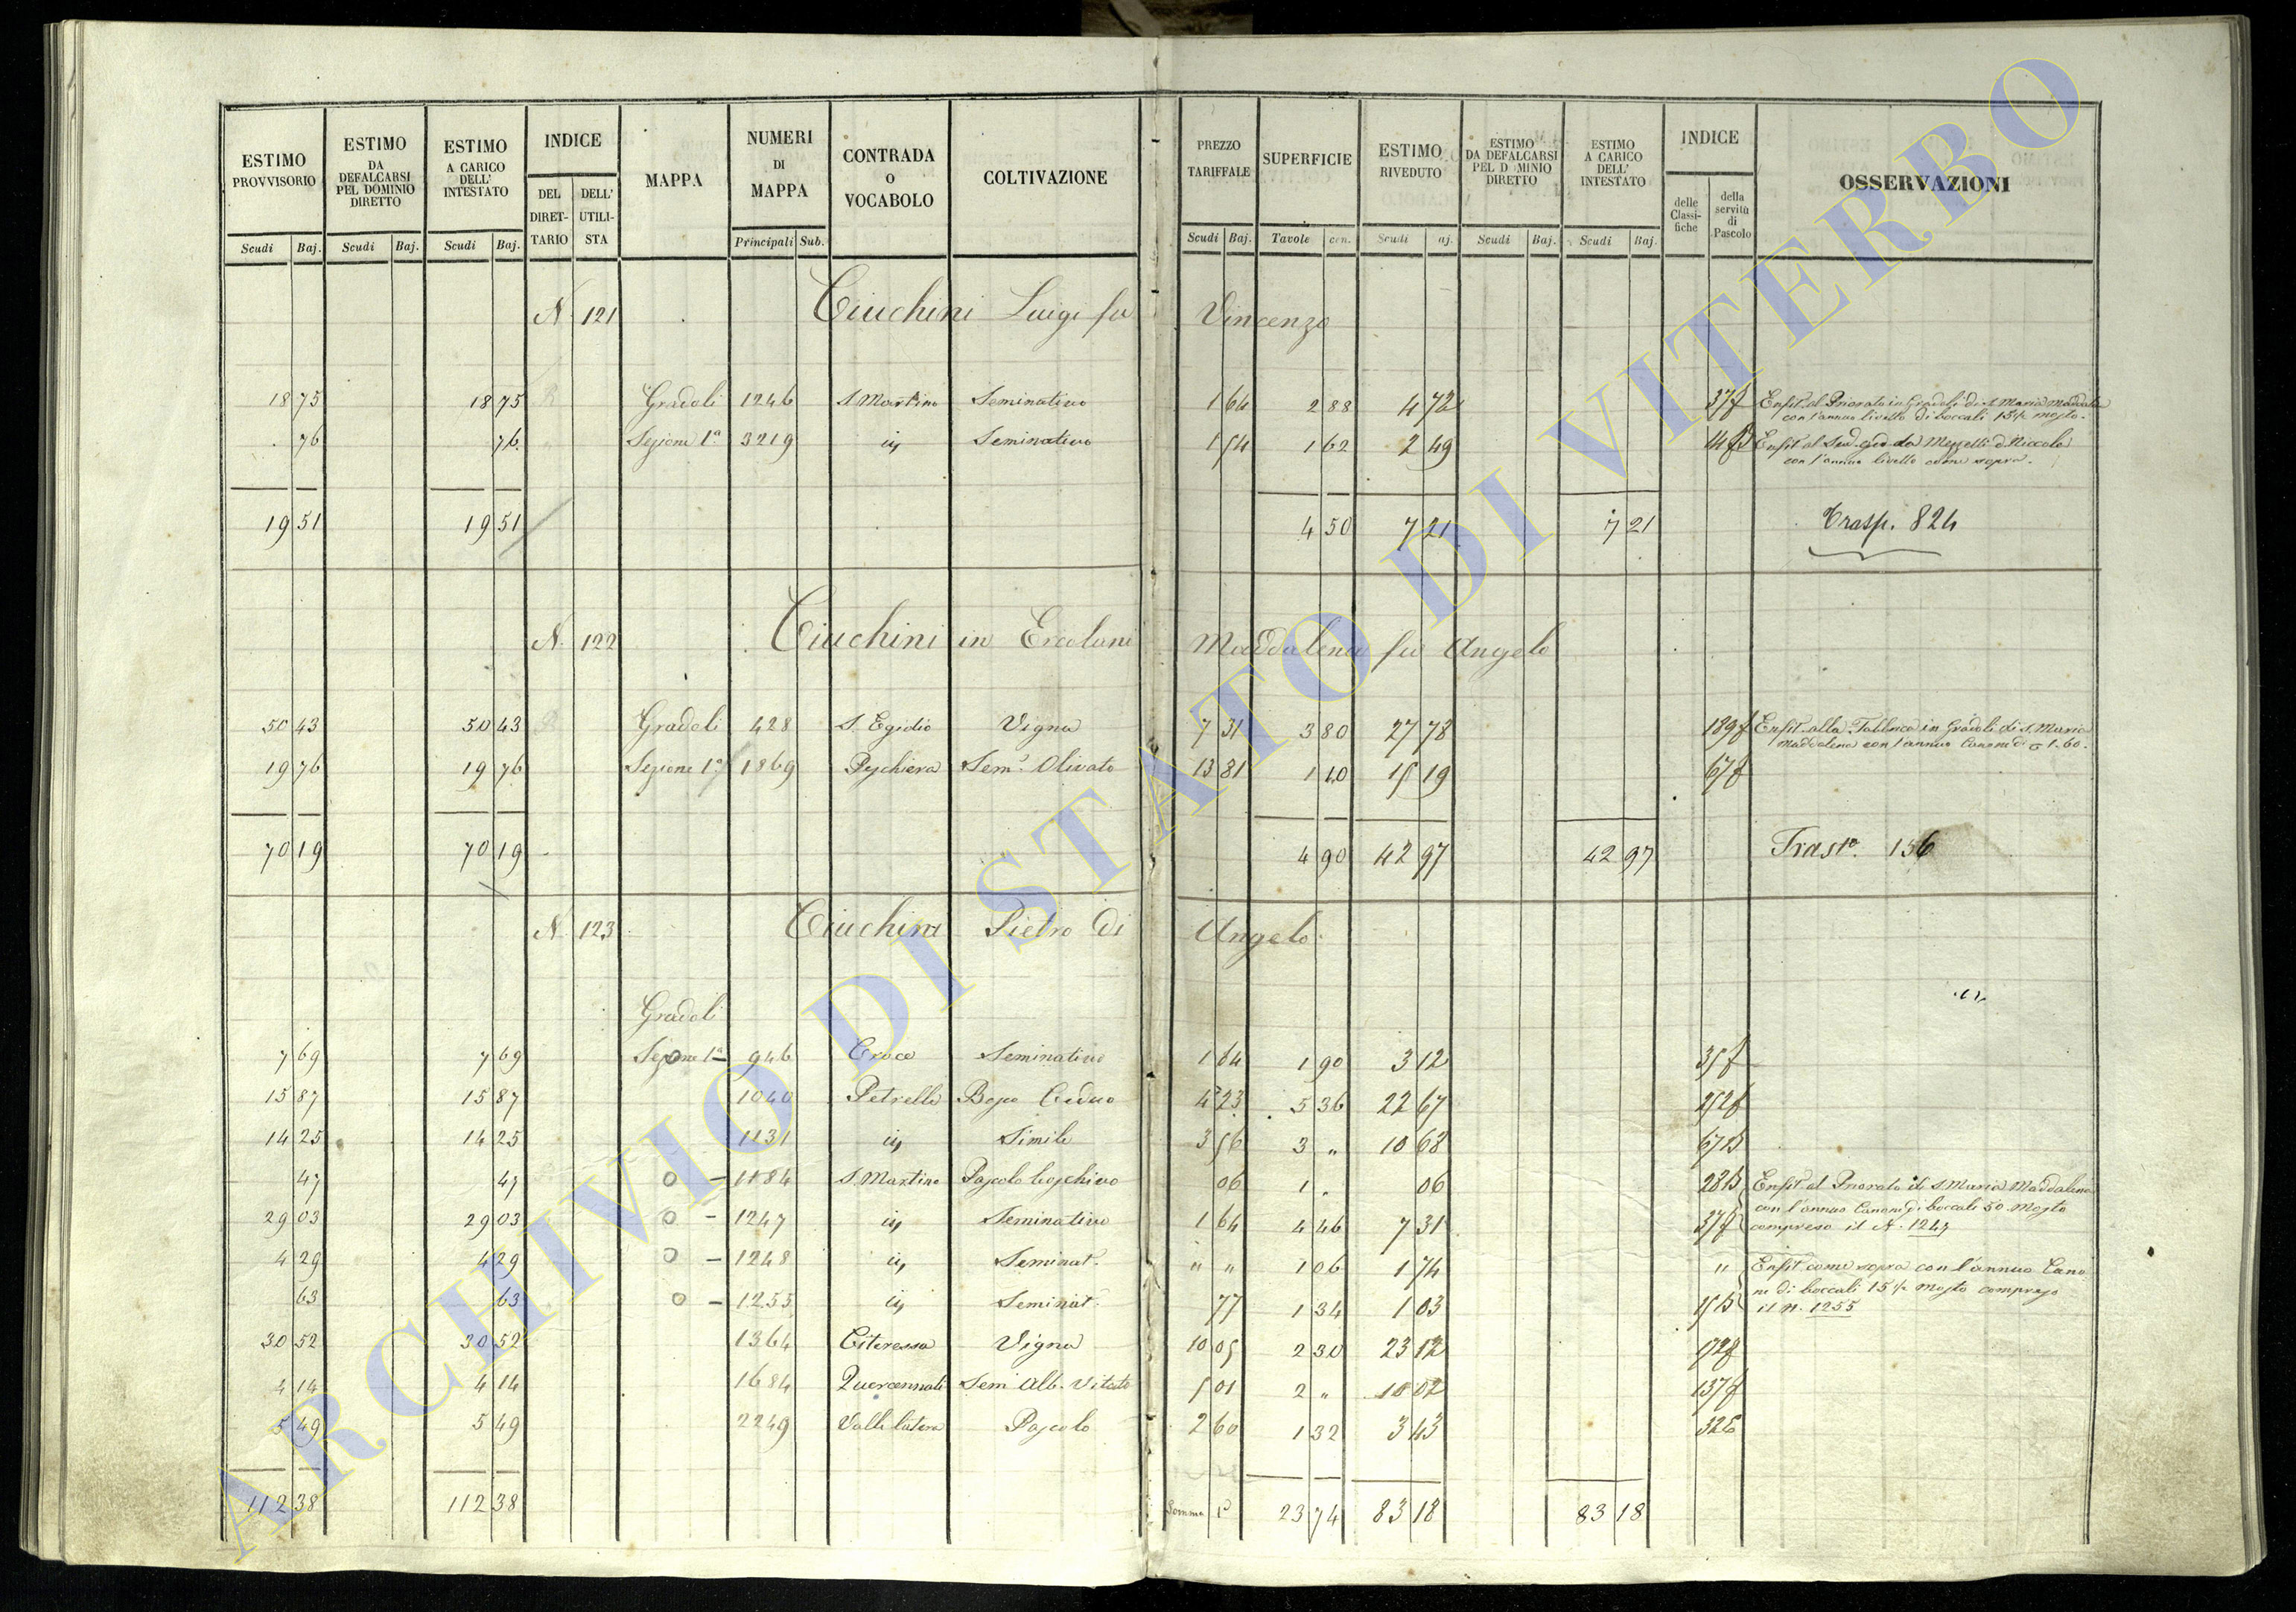 ESTIMO PROVVISORIO | ESTIMO DA DEFALCARSI PEL DOMINIO DIRETTO | ESTIMO A CARICO DELL' INTESTATO | INDICE | MAPPA | NUMERI DI MAPPA | CONTRADA O VOCABOLO | COLTIVAZIONE | PREZZO TARIFFALE | SUPERFICIE | ESTIMO RIVEDUTO | ESTIMO DA DEFALCARSI PEL D MINIO DIRETTO | ESTIMO A CARICO DELL' INTESTATO | INDICE | OSSERVAZIONI
DEL DIRET-TARIO | DELL' UTILI-STA | delle Classi-fiche | della servitù di Pascolo
Scudi | Baj. | Scudi | Baj. | Scudi | Baj. | Principali | Sub. | Scudi | Baj. | Tavole | cen. | Scudi | aj. | Scudi | Baj. | Scudi | Baj.
N. 121 Ciuchini Luigi fu Vincenzo
18 75 | 18 75 | Gradoli | 1246 | S. Martino | Seminativo | 1 64 | 2 88 | 4 72 | 37 f | Enfit. al Priorato in Gradoli di S. Maria Maddala
con l'annuo livello di boccali 15½ mosto.
76 | 76 | Sezione 1ª | 3219 | iis | Seminativo | 1 54 | 1 62 | 2 49 | Enfit. al Sud. ed a Mezzetti d. Niccola
con l'annuo livello come sopra.
19 51 | 19 51 | 4 50 | 7 21 | 7 21 | Trasp. 824
N. 122 Ciuchini in Ercolani Maddalena fu Angelo
50 43 | 50 43 | Gradoli | 428 | S. Egidio | Vigna | 7 31 | 3 80 | 27 78 | 189 f | Enfit. alla Fabbrica in Gradoli di S. Maria
Maddalena con l'annuo Canone di 1.60.
19 76 | 19 76 | Sezione 1ª | 1869 | Peschiera | Sem. Olivato | 13 81 | 1 10 | 15 19 | 67 f
70 19 | 70 19 | 4 90 | 42 97 | 42 97 | Trasto. 156
N. 123 Ciuchini Pietro di Angelo
Gradoli
7 69 | 7 69 | Sezione 1ª | 946 | Croce | Seminativo | 1 64 | 1 90 | 3 12 | 35 f
15 87 | 15 87 | 1040 | Petrella | Bosco Ceduo | 4 23 | 5 36 | 22 67 | 252 f
14 25 | 14 25 | 1131 | iis | Simile | 3 56 | 3 „ | 10 68
47 | 47 | 1184 | S. Martino | Pascolo boschivo | 06 | 1 „ | 06 | Enfit. al Priorato di S. Maria Maddalena
con l'annuo Canone di boccali 50 Mosto
29 03 | 29 03 | 1247 | iis | Seminativo | 1 64 | 4 46 | 7 31 | 37 f | compreso il N. 1247
4 29 | 4 29 | 1248 | iis | Seminat. | „ „ | 1 06 | 1 74 | „ | Enfit. come sopra con l'annuo Cano
ne di boccali 15½ mosto compreso
63 | 63 | 1255 | iis | Seminat. | 77 | 1 34 | 1 03 | il N. 1255
30 52 | 30 52 | 1364 | Citeressa | Vigna | 10 05 | 2 30 | 23 12 | 172 f
4 14 | 4 14 | 1684 | Quercennali | Sem Alb. Vitato | 5 01 | 2 „ | 10 02 | 137 f
5 49 | 5 49 | 2249 | Valle latera | Pascolo | 2 60 | 1 32 | 3 43
112 38 | 112 38 | Somma | 23 74 | 83 18 | 83 18
ARCHIVIO DI STATO DI VITERBO